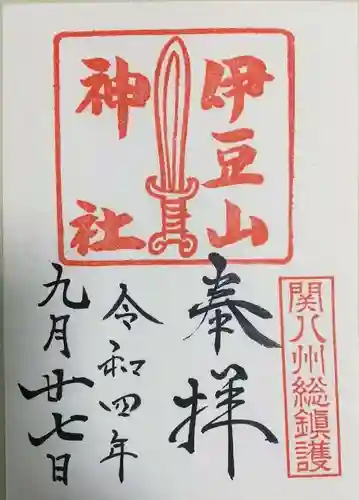 関八州総鎮護
伊豆山
神社
奉拝
令和四年
九月廿七日